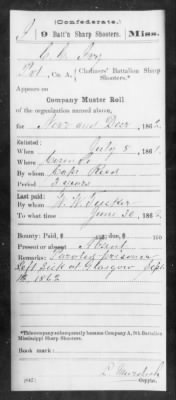 (Confederate.)
9 Batt'n Sharp Shooters. Miss.
Co. A, Chalmers' Battalion Sharp Shooters.*
Appears on
Company Muster Roll
of the organization named above,
for Nov and Dec, 1862
Enlisted:
When July 8, 1861
Where
By whom Capt Reed
Period 3 years
Last paid:
By whom W. W. Tucker
To what time June 30, 1862
Bounty: Paid, $ 100; due, $ 100
Present or absent Absent
Remarks: Paroled prisoner
Left sick at Glasgow Sept
1862
*This company subsequently became Company A, 9th Battalion
Mississippi Sharp Shooters.
Book mark:
(642)
Copyist.